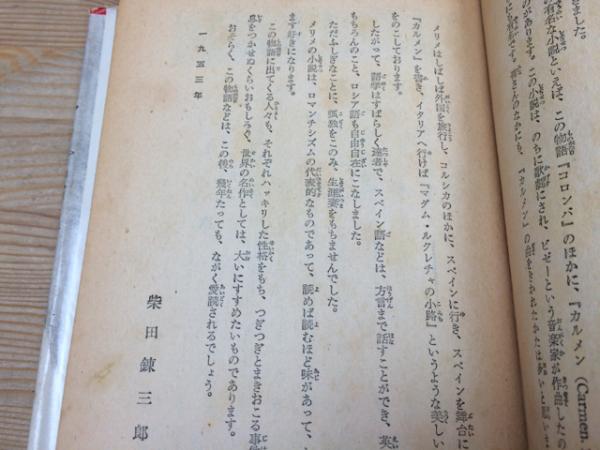 きました。
有名な小説といえば、この物語『コロンバ』のほかに、『カルメン(Carmen.
があります。この小説は、のちに歌劇にされ、ビゼーという音楽家が作曲したの
さんのなかにも、『カルメン』の曲をきかれたかたは
メリメはしばしば外国を旅行し、コルシカのほかに、スペインに行き、スペインを舞台に
『カルメン』を書き、イタリアへ行けば『マダム・ルクレチヤの小路』というような美しい
をのこしております。
したがって、語学はすばらしく達者で、スペイン語などは、方言まで話すことができ、英
もちろんのこと、ロシア語も自由自在にこなしました。
ただふしぎなことに、孤独をこのみ、生涯妻をもちませんでした。
メリメの小説は、ロマンチシズムの代表的なものであって、読めば読むほど味があって、
ます好きになります。
この物語に出てくる人々も、それぞれハッキリした性格をもち、つぎつぎとまきおこる事
をつかせぬくらいおもしろく、世界の名作としては、大いにすすめたいものであります。
おそらく、この物語などは、この後、幾年たっても、ながく愛読されるでしょう。
一九五三年
柴田錬三郎